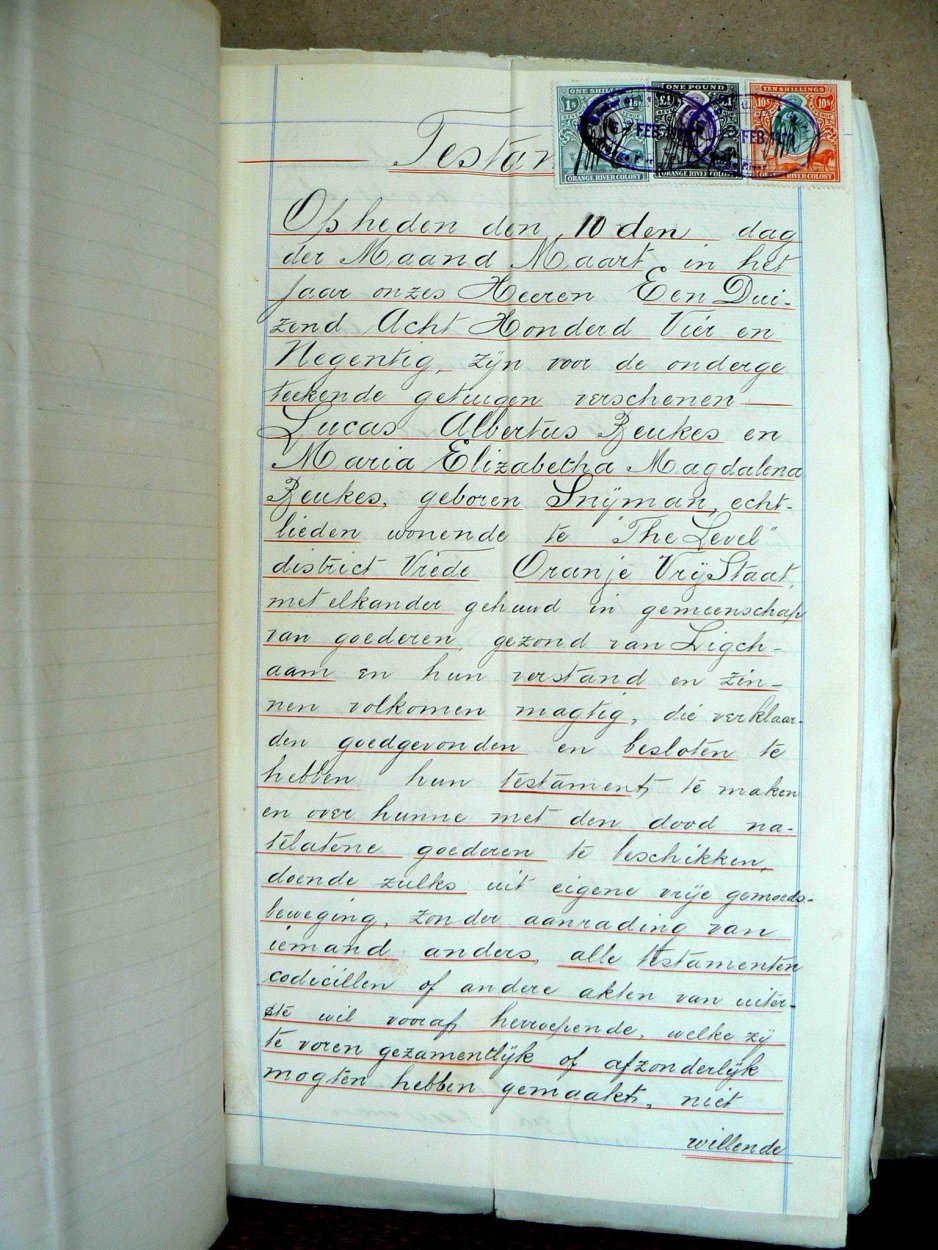 ONE SHILLING ONE POUND TEN SHILLINGS
1s 1s £1 £1 10s 10s
FEB FEB
ORANGE RIVER COLONY ORANGE RIVER COLONY ORANGE RIVER COLONY
Testa
Op heden den 10 den dag
der Maand Maart in het
Jaar onzes Heeren Een Dui-
zend Acht Honderd Vier en
Negentig, zijn voor de onderge
teekende getuigen verschenen —
Lucas Albertus Beukes en
Maria Elizabetha Magdalena
Beukes, geboren Snijman, echt-
lieden wonende te "The Level"
district Vrede Oranje VrijStaat,
met elkander gehuwd in gemeenschap
van goederen, gezond van Ligch-
aam en hun verstand en zin-
nen volkomen magtig, die verklaar-
den goedgevonden en besloten te
hebben hun testament, te maken
en over hunne met den dood na-
telatene goederen te beschikken,
doende zulks uit eigene vrije gemoeds-
beweging, zonder aanrading van
iemand anders, alle testamenten
codicillen of andere akten van uiter-
ste wil vooraf herroepende, welke zij
te voren gezamentlijk of afzonderlijk
mogten hebben gemaakt, niet
willende